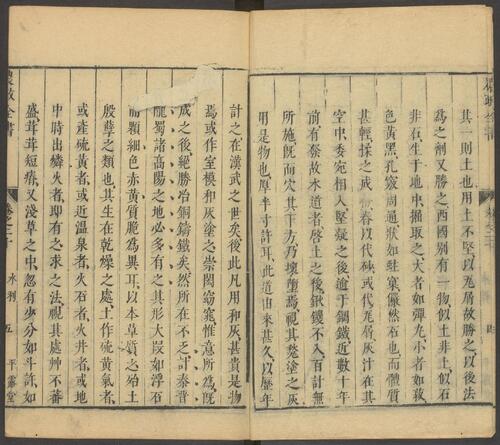 其一則土也用土不堅以瓦屑故勝之以後法
為之劑又勝之西國別有一物似土非土似石
非石生于地中掘取之大者如彈丸小者如菽
色黃黑孔竅周通狀如蛀窠儼然石也而體質
甚輕揉之成粉舂以代砂或代瓦屑灰汁在其
空中委宛相入堅凝之後逾于鋼鐵近數十年
前有發故水道者啓土之後鍬钁不入百計無
所施既而穴其下方乃壞墮焉視其發塗之灰
用是物也厚半寸許耳此道由來甚久以歷年
四
計之在漢武之世矣後此凡用和灰甚貴是物
焉或作室模和灰塗之崇閎窈窕惟意所為既
成之後絶勝冶銅鑄鐵矣然所在不乏計秦晉
隴蜀諸高陽之地必多有之其形大段如浮石
而顆細色赤黃質脆為異耳以本草質之殆土
殷孽之類也其生在乾燥之處土作硫黃氣者
或產硫黃者或近溫泉者火石者火井者或地
中時出燐火者即有之求之法視其處艸不蕃
盛茸茸短瘠又淺草之中忽有少分如斗許如
農政全書
卷之二十
水利
五
平露堂